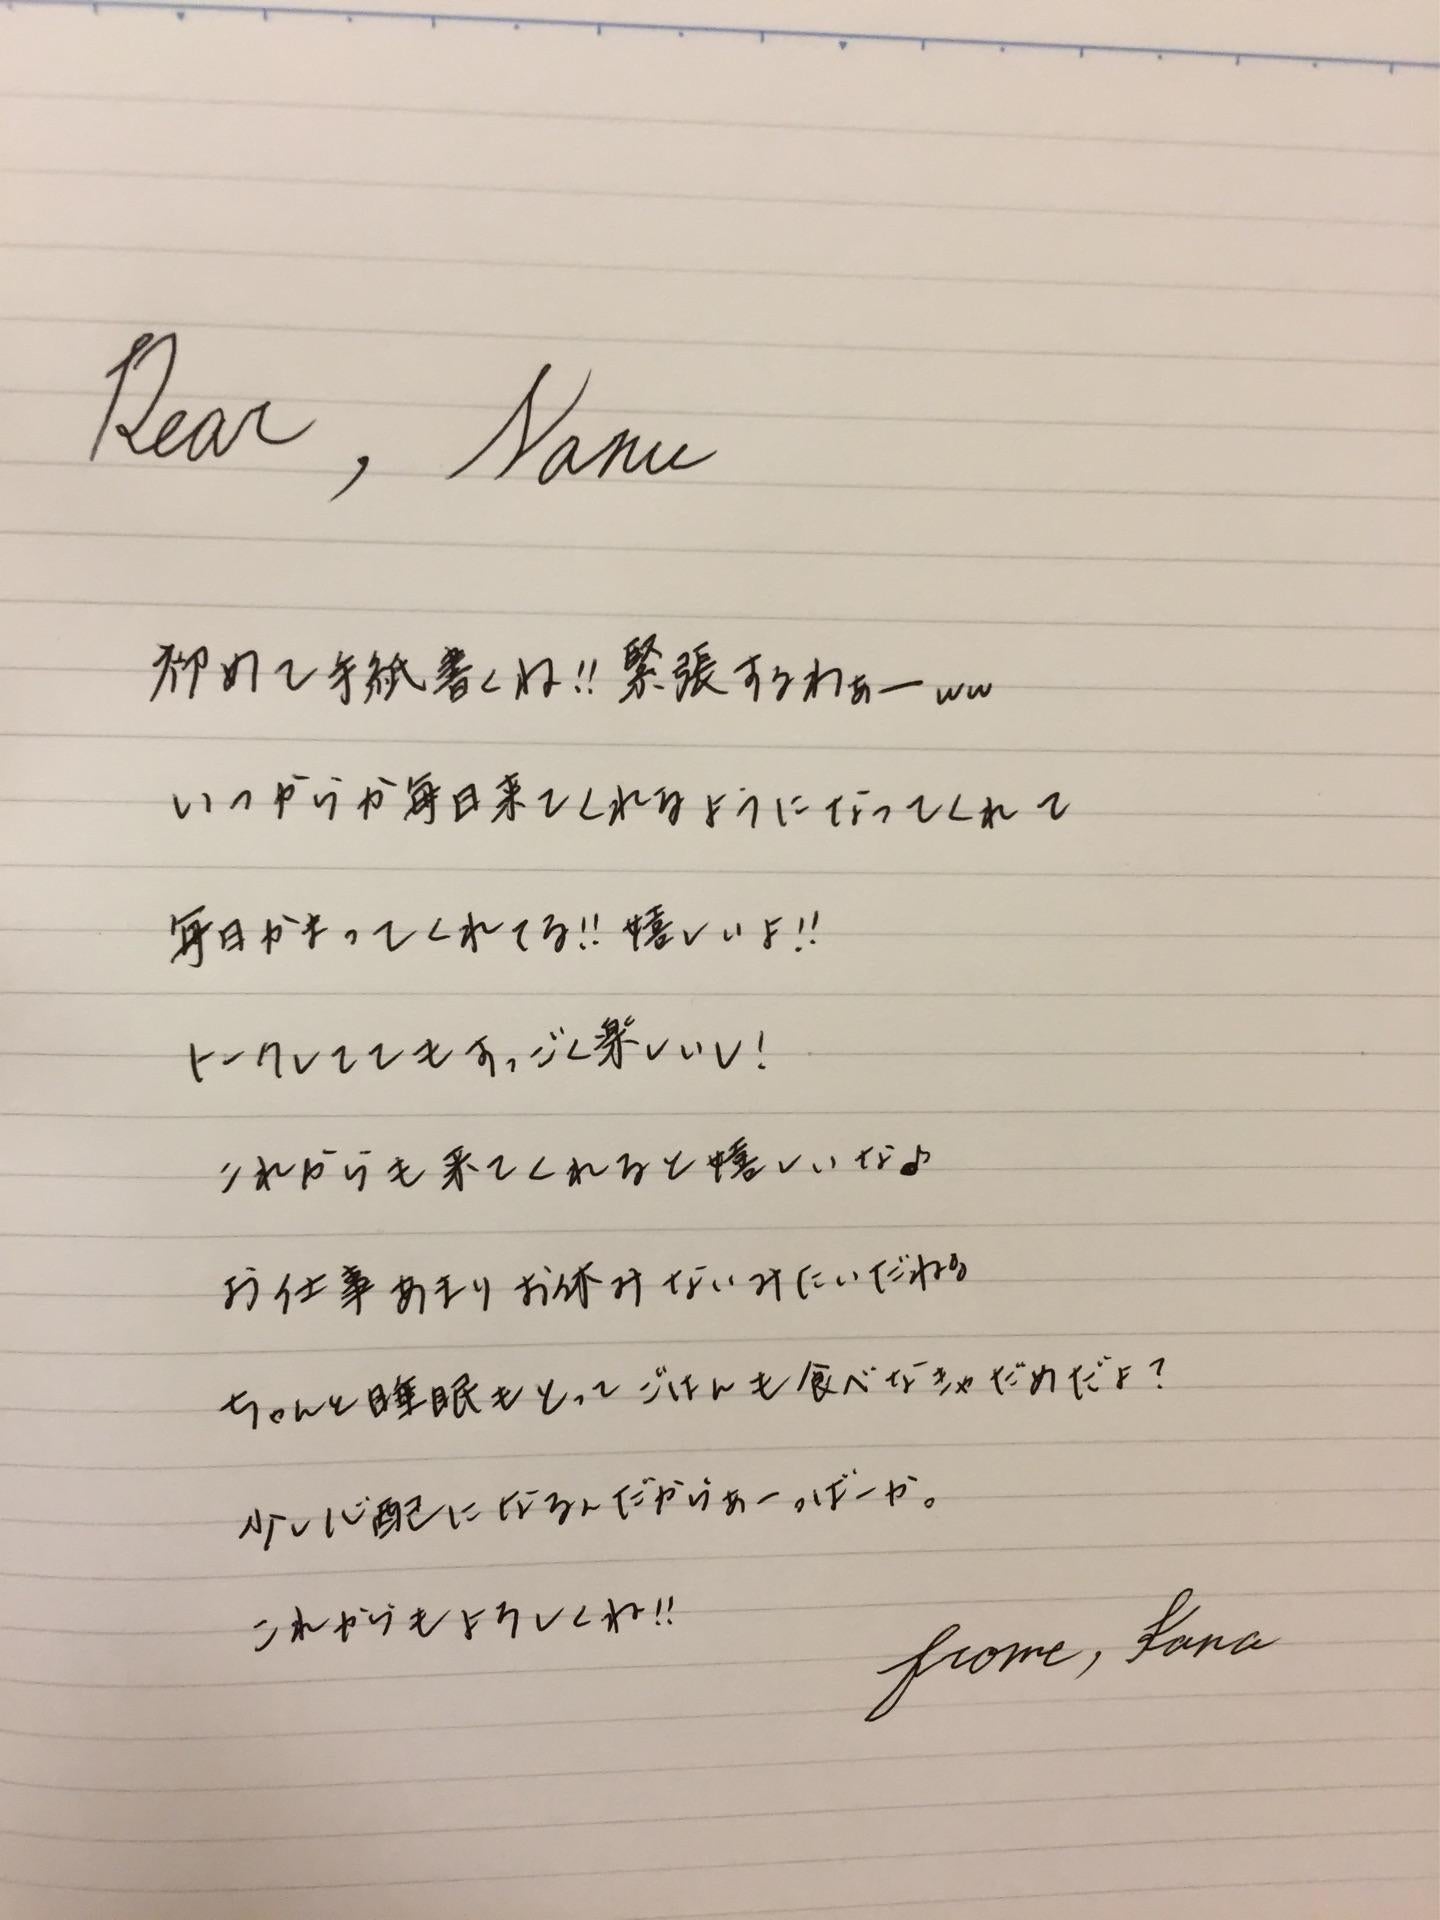 Dear, Nanu
初めて手紙書くね!!緊張するわぁーww
いつからか毎日来てくれるようになってくれて
毎日かまってくれてる!!嬉しいよ!!
トークしてても すっごく楽しいし!
これからも来てくれると嬉しいな♪
お仕事あまりお休みないみたいだね。
ちゃんと睡眠もとってごはんも食べなきゃだめだよ?
少し心配になるんだからぁー。ばーか。
これからもよろしくね!!
frome, Kana